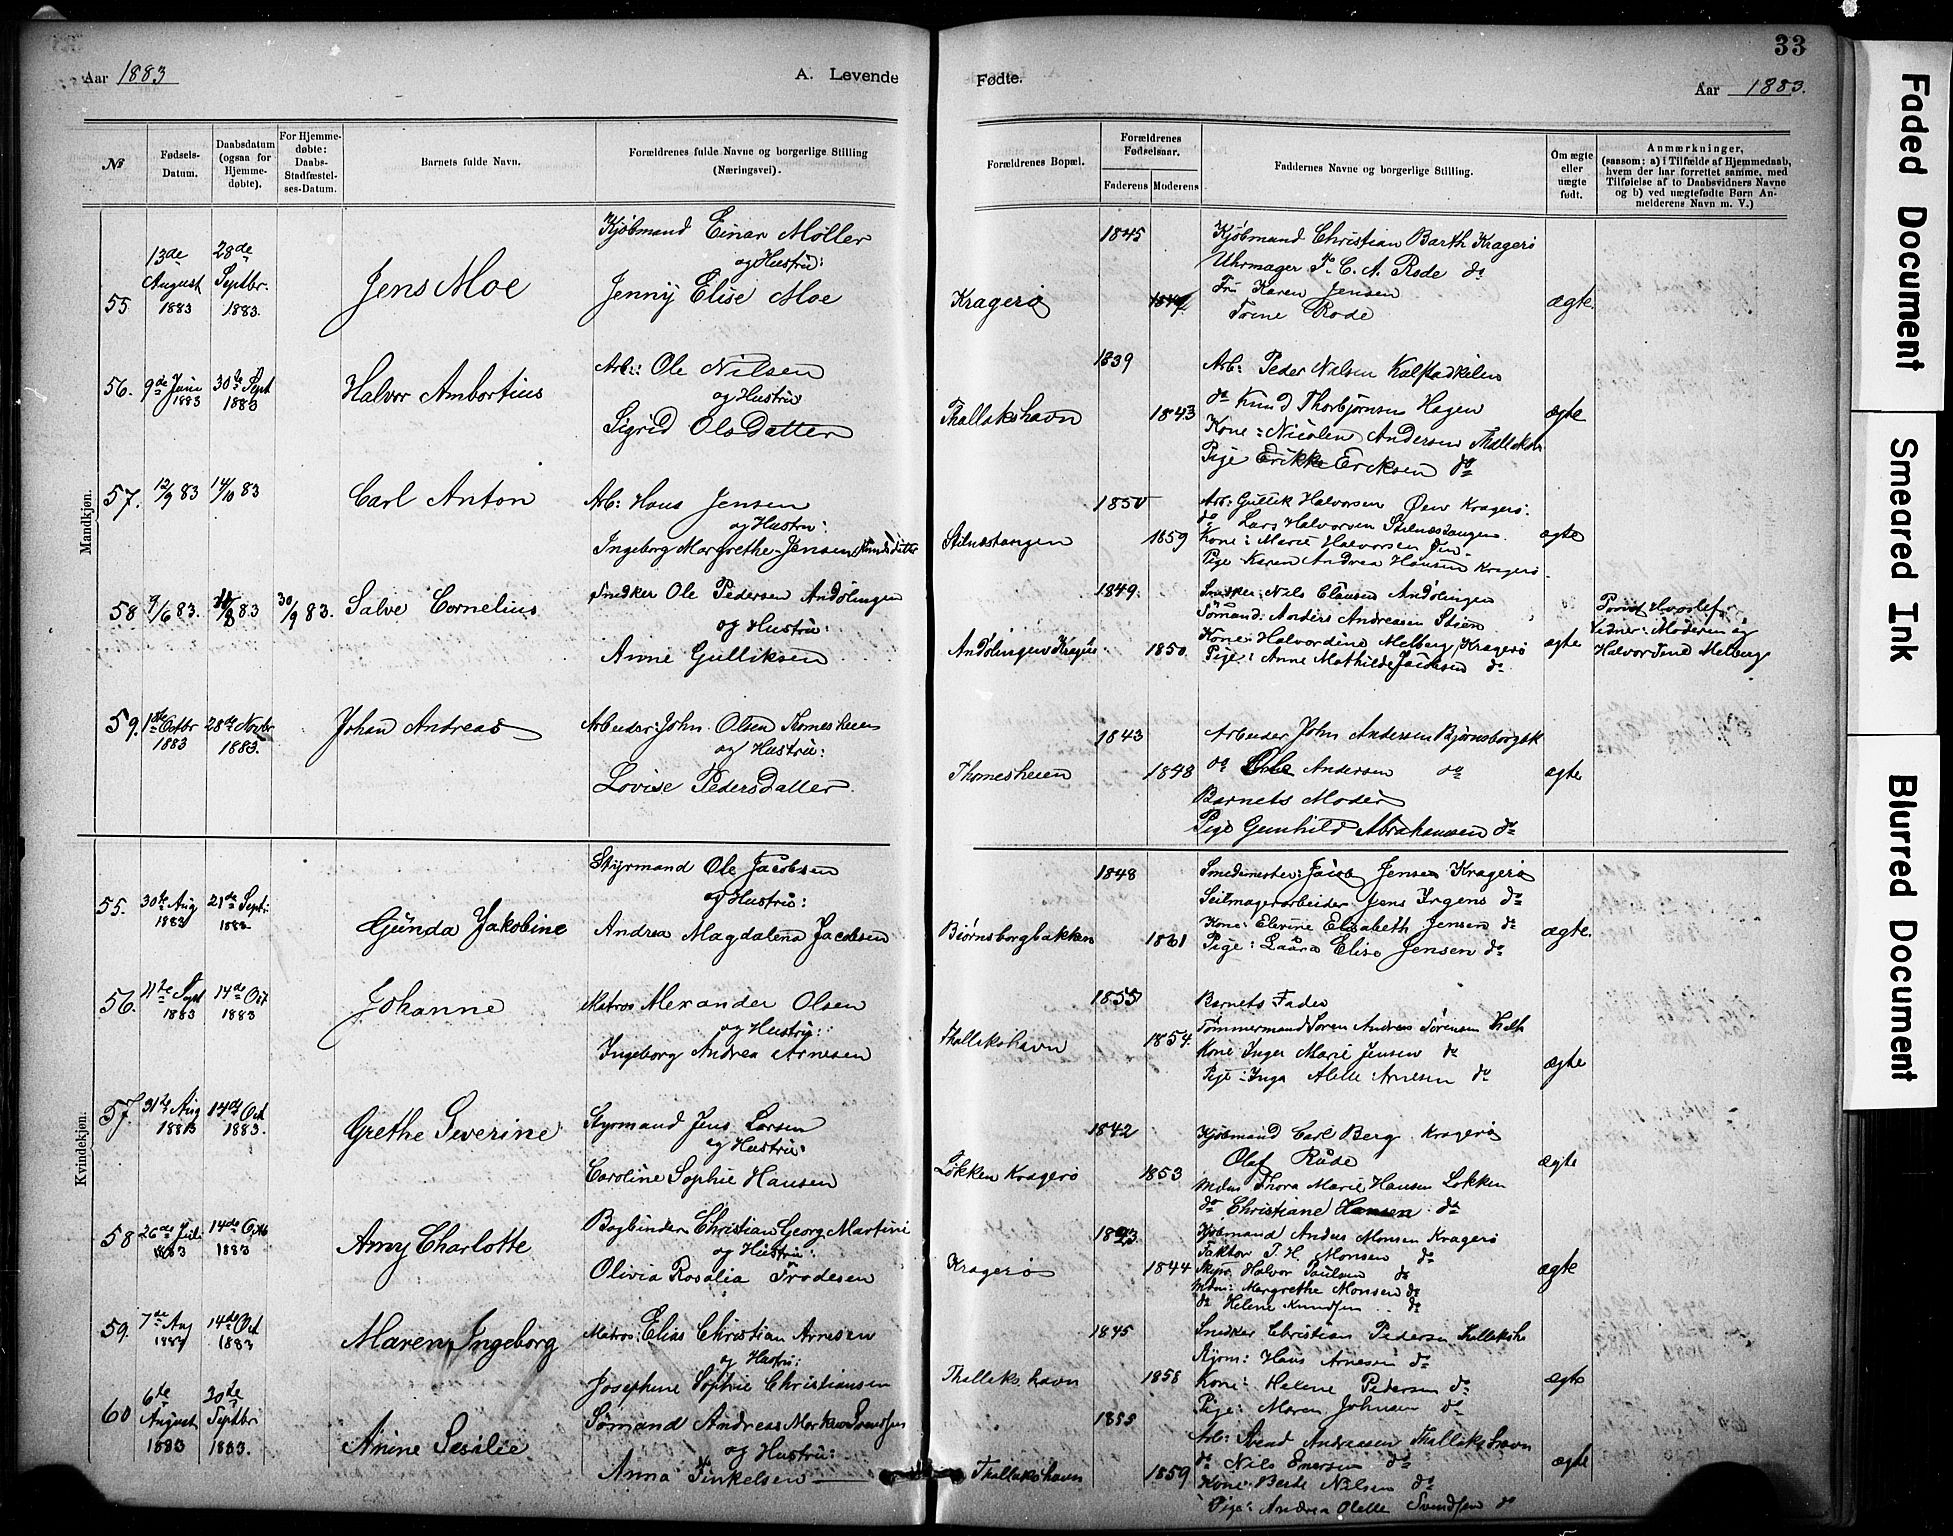 33
Aar 1883
A. Levende
Fødte.
Aar 1883.
№
Fødsels-Datum.
Daabsdatum (ogsaa for Hjemme-døbte).
For Hjemme-døbte: Daabs-Stadfæstel-ses-Datum.
Barnets fulde Navn.
Forældrenes fulde Navne og borgerlige Stilling (Næringsvei).
Forældrenes Bopæl.
Forældrenes Fødselsaar.
Faderens
Moderens
Faddernes Navne og borgerlige Stilling.
Om ægte eller uægte født.
Anmærkninger,
(saasom: a) i Tilfælde af Hjemmedaab, hvem der har forrettet samme, med Tilføielse af to Daabsvidners Navne og b) ved uægtefødte Børn Anmelderens Navn m. V.)
Mandkjøn.
55 13de August 1883 28de Septbr. 1883.
Jens Moe
Kjøbmand Einar Møller
og Hustru:
Jenny Elise Moe
Kragerø
1845
Kjøbmand Christian Barth Kragerø
Uhrmager P. C. A. Rode do
Fru Karen Jensen
Rode
ægte
56. 9de Juni 1883 30te Sept 1883
Halvor Ambortius
Arb: Ole Nilsen
og Hustru
Sigrid Olsdatter
Thallakshavn
1839
1843
Arb: Peder Nilsen Kalstadkilen
do Knud Thorbjørnsen Hagen
Kone: Nicolen Andersen Thallaksh
Pige Erikke Ericksen do
ægte
57. 12/9 83 14/10 83
Carl Anton
Arb: Hans Jensen
og Hustru:
Ingeborg Margrethe Jensen Knudsdatter
Stilnæstangen
1850
1859
Arb: Gullik Halvorsen Øen Kragerø.
do Lars Halvorsen Stilnæstangen
Kone: Marie Halvorsen Øen
Pige Karen Andrea Hansen Kragerø.
ægte
58 9/6 83. 83 30/9 83.
Salve Cornelius
Snedker Ole Pedersen Andølingen
og Hustru:
Anne Gulliksen
Andølingen Kragerø
1849.
1850.
Snedker: Nils Clausen Andølingen
Sømand: Anders Andreasen Stien
Kone: Halvordine Melberg Kragerø
Pige: Anne Mathilde Jacobsen do
ægte
Vidner: Moderen og
Halvordine Melberg
59. 1ste Octbr 1883 28de Novbr 1883.
Johan Andreas
Arbeider: John Olsen Thomesheien
og Hustru:
Lovise Pedersdatter.
Thomesheien
1843
1848
Arbeider John Andersen Bjørnsborgbk
do Ole Andersen do
Barnets Moder
Pige Gunhild Abrahamsen do
ægte
Kvindekjøn.
55. 30te Aug 1883 21de Septr: 1883
Gunda Jakobine
Styrmand Ole Jacobsen
og Hustru:
Andrea Magdalena Jacobsen
Bjørnsborgbakken
1848
1861
Smedemester: Jacob Jensen Kragerø
Seilmagerarbeider Jens Irgens do
Kone: Elevine Elisabeth Jensen do
Pige: Laura Elise Jensen do
ægte.
56. 11te Sept 1883 14de Oct 1883
Johanne
Matros Alexander Olsen
og Hustru:
Ingeborg Andrea Arnesen
Thallakshavn
1855
1854.
Barnets Fader
Tømmermand Soren Andreas Sørensen Thalh
Kone Inger Marie Jensen do
Pige: Inga Alette Arnesen do
ægte
57. 31te Aug 1883 14de Oct 1883.
Grethe Severine
Styrmand Jens Larsen
og Hustru:
Caroline Sophie Hansen
Løkken Kragerø
1842
1853
Kjøbmand Carl Berg Kragerø
Olaf Rode
Mdm Thora Marie Hansen Løkken
do Christiane Hansen do
ægte
58 26de Juli 1883 14de Octb 1883
Amy Charlotte
Bogbinder Christian Georg Martini
og Hustru:
Olivia Rosalia Frodesen
Kragerø
1843
1844
Kjøbmand Anders Monsen Kragerø
Faktor T. H. Monsen do
Skpr. Halvor Paulsen do
Mdm: Margrethe Monsen do
do Helene Knudsen do
ægte
59. 7de Aug 1883 14de Oct 1883
Maren Ingeborg
Matros: Elias Christian Arnesen
og Hustru:
Josephine Sophie Christiansen
Thallakshavn
1845
1858
Snedker Christian Pedersen Thallaksh
Hans Arnesen do
Kone: Helene Pedersen do
Pige: Maren Johnsen do
ægte
60 6te August 1883 30de Septbr 1883.
Anine Sesilie
Sømand Andreas Markus Svendsen
og Hustru:
Anna Finkelsen
Thallakshavn
1855
1859
Arb: Svend Andreassen Thallakshavn
do Nils Emersen do
Kone: Berte Nilsen do
Pige: Andrea Olette Svendsen do
ægte
Faded Document Smeared Ink Blurred Document